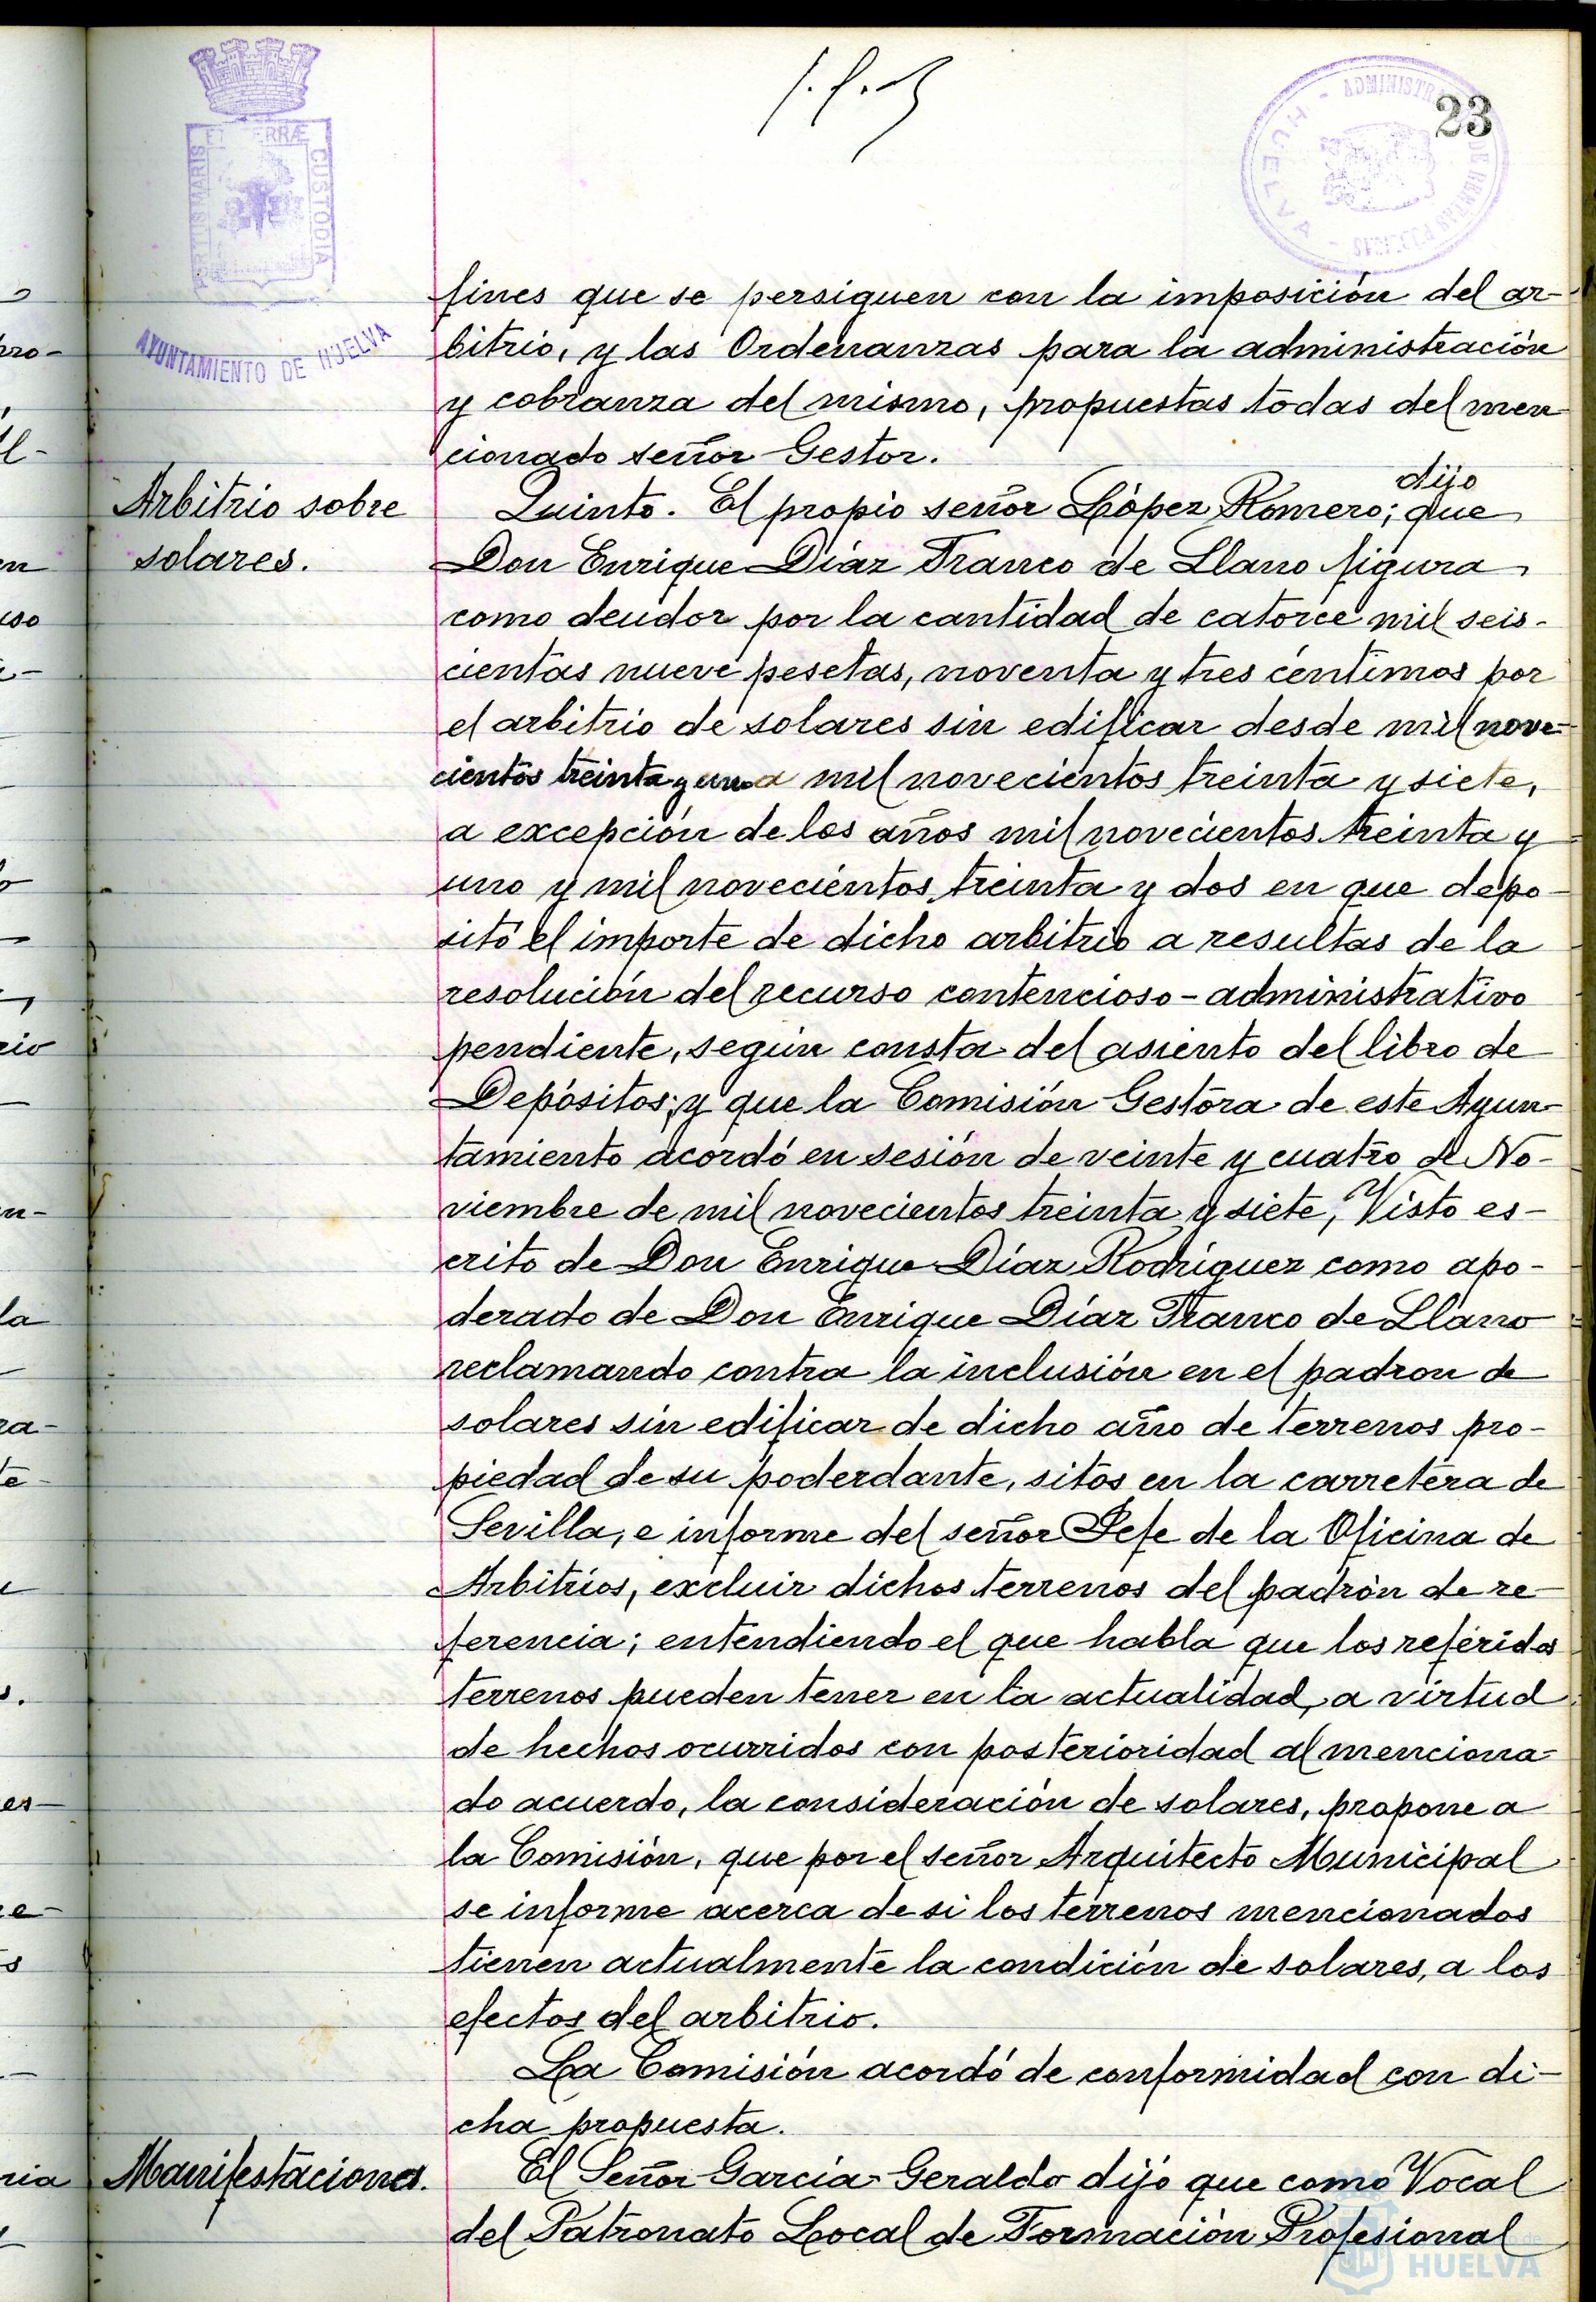 23
PORTUS MARIS ET TERRÆ CUSTODIA
AYUNTAMIENTO DE HUELVA
fines que se persiguen con la imposición del ar-
bitrio, y las Ordenanzas para la administración
y cobranza del mismo, propuestas todas del men
cionado señor Gestor.
Arbitrio sobre
solares.
dijo
Quinto. El propio señor López Romero; que
Don Enrique Díaz Franco de Llano figura
como deudor por la cantidad de catorce mil seis-
cientas nueve pesetas, noventa y tres centimos por
el arbitrio de solares sin edificar desde mil nove-
cientos treinta y uno a mil novecientos treinta y siete,
a excepción de los años mil novecientos treinta y
uno y mil novecientos treinta y dos en que depo-
sitó el importe de dicho arbitrio a resultas de la
resolución del recurso contencioso-administrativo
pendiente, según consta del asiento del libro de
Depósitos; y que la Comisión Gestora de este Ayun-
tamiento acordó en sesión de veinte y cuatro de No-
viembre de mil novecientos treinta y siete, Visto es-
crito de Don Enrique Díaz Rodríguez como apo-
derado de Don Enrique Díaz Franco de Llano
reclamando contra la inclusión en el padron de
solares sin edificar de dicho año de terrenos pro-
piedad de su poderdante, sitos en la carretera de
Sevilla, e informe del señor Jefe de la Oficina de
Arbitrios, excluir dichos terrenos del padrón de re-
ferencia; entendiendo el que habla que los referidos
terrenos pueden tener en la actualidad, a virtud
de hechos ocurridos con posterioridad al menciona-
do acuerdo, la consideración de solares, propone a
la Comisión, que por el señor Arquitecto Municipal
se informe acerca de si los terrenos mencionados
tienen actualmente la condición de solares, a los
efectos del arbitrio.
La Comisión acordó de conformidad con di-
cha propuesta.
Manifestaciones.
El Señor García Geraldo dijo que como Vocal
del Patronato Local de Formación Profesional
HUELVA